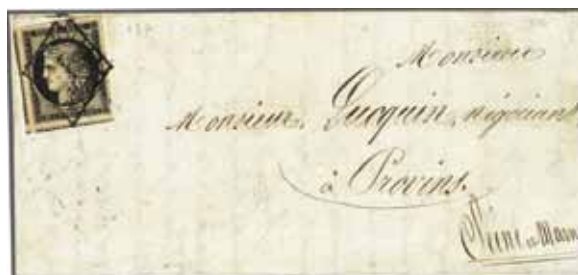 Monsieur
Monsieur, négociant
à Provins.
Seine et Marn